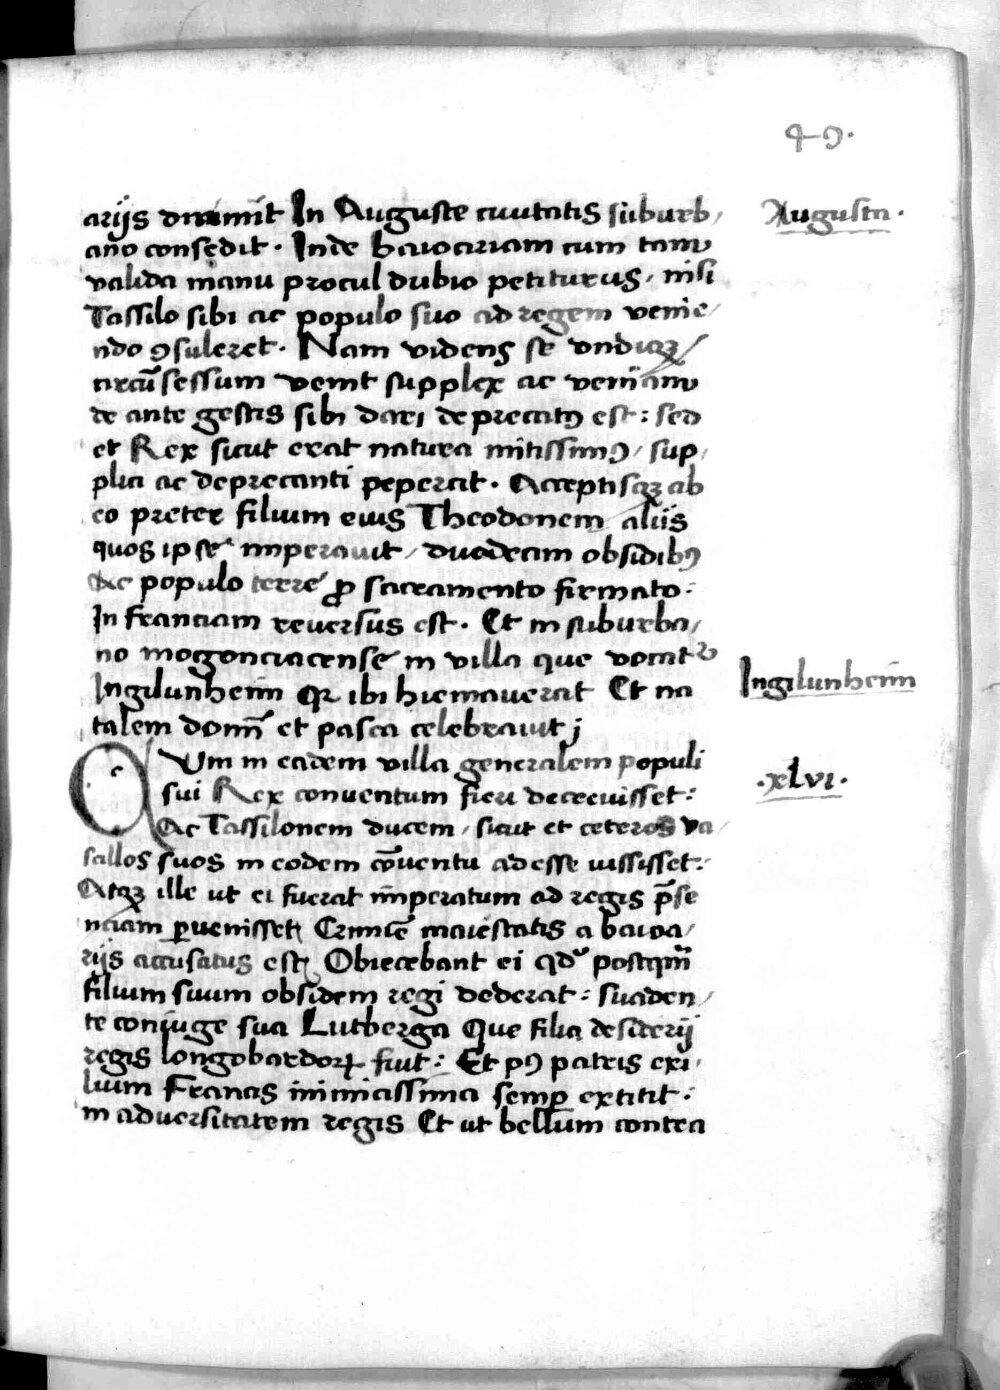 49.
arijs dirimit In Auguste ciuitatis suburb/
Augusta.
ano consedit. Inde baioariam cum tam
valida manu procul dubio petiturus, nisi
Tassilo sibi ac populo suo ad regem venie/
ndo ꝯsuleret. Nam videns se vndiqꝫ
circũsessum venit supplex ac veniam
de ante gestis sibi dari deprecatꝰ est: sed
et Rex sicut erat natura mitissimꝰ, sup/
plici ac deprecanti pepercit. Acceptisqꝫ ab
eo preter filium eius Theodonem aliis
quos ipse imperauit, duodecim obsidibꝰ
Ac populo terre ꝓ sacramento firmato:
In franciam reuersus est. Et in suburba/
no mogonciacense in villa que vocatʳ
Ingilunheim
Ingilunheim qꝛ ibi hiemauerat Et na
talem domĩ et pasca celebrauit;
Qum in eadem villa generalem populi
.xlvi.
sui Rex conuentum fieri decreuisset:
Ac Tassilonem ducem, sicut et ceteros va/
sallos suos in eodem cõuentu adesse iussisset:
Atqꝫ ille ut ei fuerat imperatum ad regis p̃se
nciam ꝑuenisset Crimĩe maiestatis a baioa/
rijs accusatus est Obiecebant ei qd' postqm̃
filium suum obsidem regi dederat: suaden/
te coniuge sua Lutberga Que filia desiderij
regis longobardoꝝ fuit: Et pꝰ patris exi/
lium Francis inimicissima semꝑ extitit:
in aduersitatem regis Et ut bellum contra